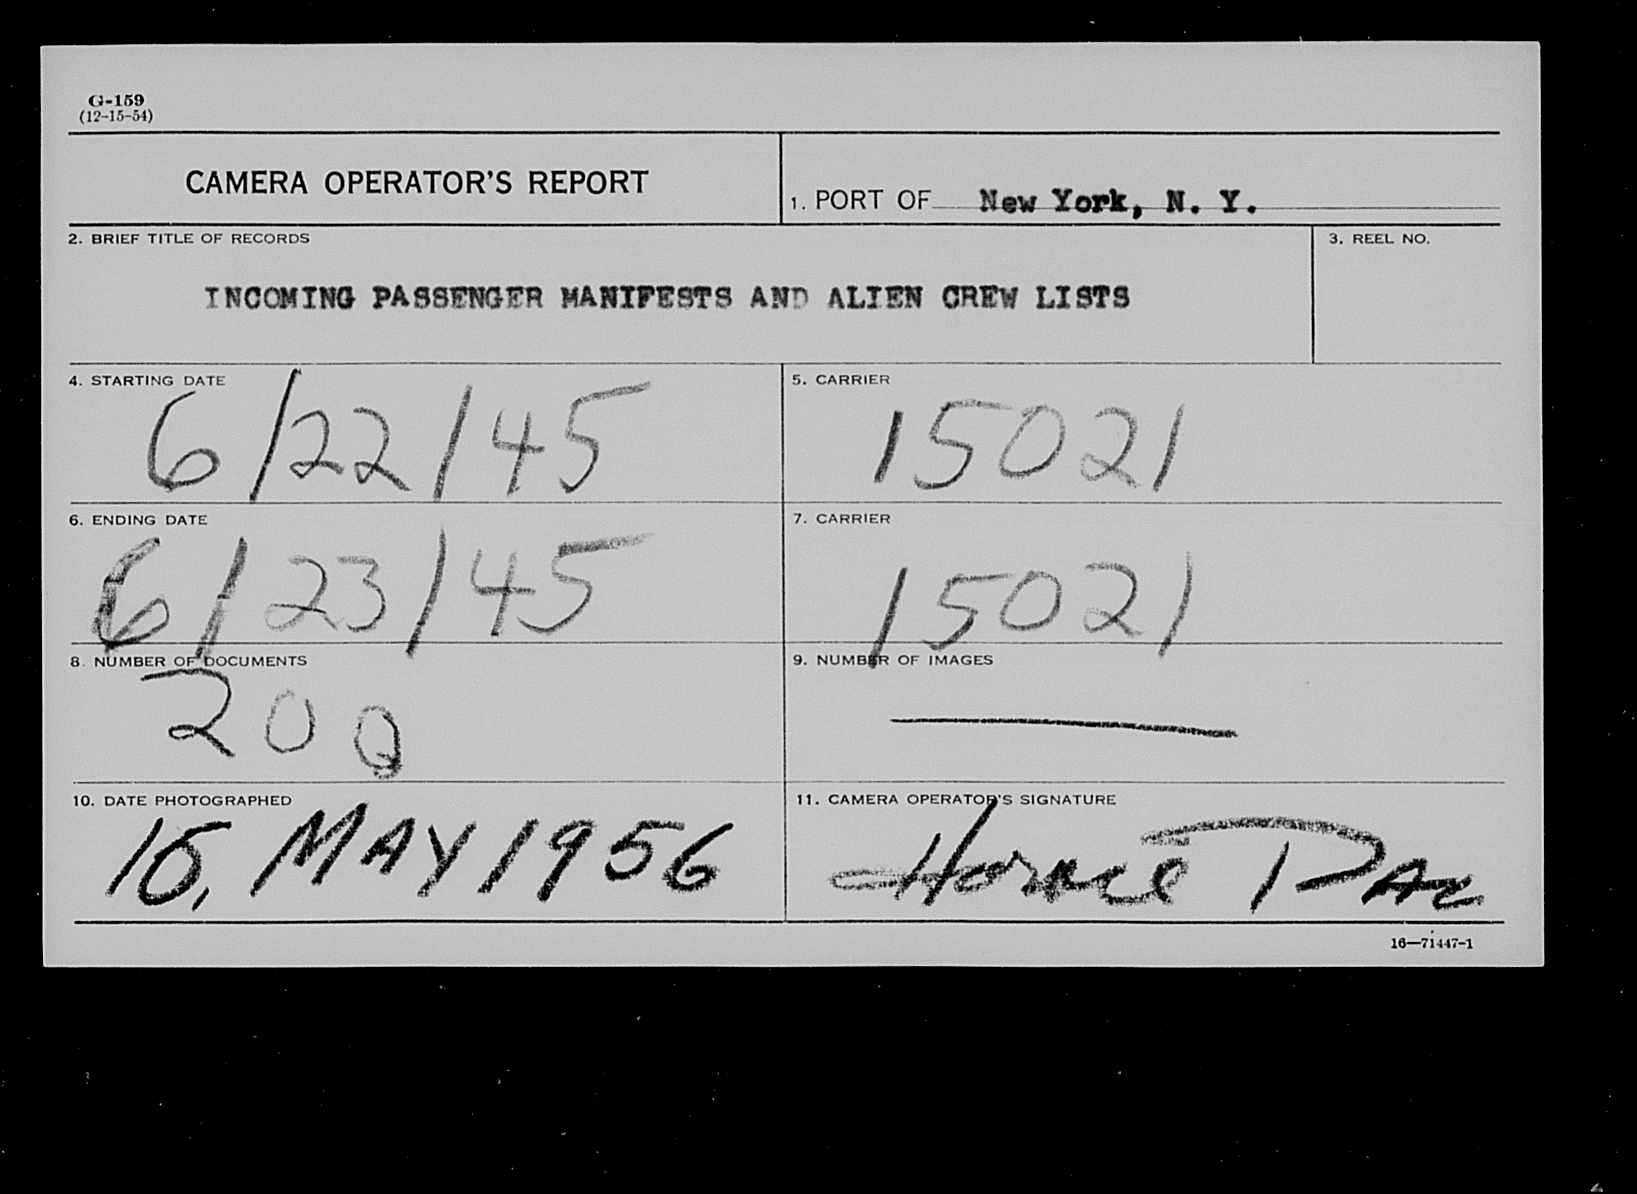 G-159
(12-15-54)
CAMERA OPERATOR'S REPORT
1. PORT OF New York, N. Y.
2. BRIEF TITLE OF RECORDS
3. REEL NO.
INCOMING PASSENGER MANIFESTS AND ALIEN CREW LISTS
4. STARTING DATE
6/22/45
5. CARRIER
15021
6. ENDING DATE
6/23/45
7. CARRIER
15021
8. NUMBER OF DOCUMENTS
200
9. NUMBER OF IMAGES
10. DATE PHOTOGRAPHED
MAY 1956
11. CAMERA OPERATOR'S SIGNATURE
Horace
16—71447-1